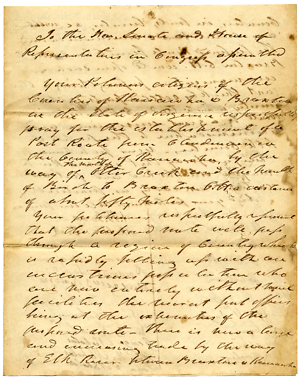 To the Hon. Senate and House of
Representatives in Congress assembled
Your Petitioners citizens of the
Counties of Kanawha & Braxton
in the State of Virginia respectfully
pray for the establishment of a
Post Route from Clendenin, in
the County of Kanawha, by the
way of Otter Creek and the mouth
of Birch to Braxton C.H. a distance
of about fifty miles.
Your petitioners respectfully represent
that the proposed route will pass
through a region of Country which
is rapidly filling up with an
industrious population who
are now entirely without mail
facilities the nearest post offices
being at the extremities of the
proposed route - there is now a large
and increasing trade by the way
of Elk River, between Braxton & Kanawha